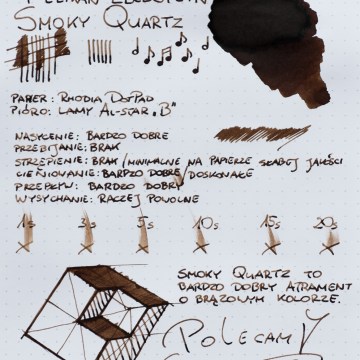 PELIKAN EDELSTEIN
SMOKY QUARTZ
PAPIER: RHODIA DOTPAD
PIÓRO: LAMY AL-STAR "B"
NASYCENIE: BARDZO DOBRE
PRZEBIJANIE: BRAK
STRZĘPIENIE: BRAK/MINIMALNE NA PAPIERZE SŁABEJ JAKOŚCI
CIENIOWANIE: BARDZO DOBRE/DOSKONAŁE
PRZEPŁYW: BARDZO DOBRY
WYSYCHANIE: RACZEJ POWOLNE
1s 3s 5s 10s 15s 20s
SMOKY QUARTZ TO
BARDZO DOBRY ATRAMENT
O BRĄZOWYM KOLORZE.
POLECAMY